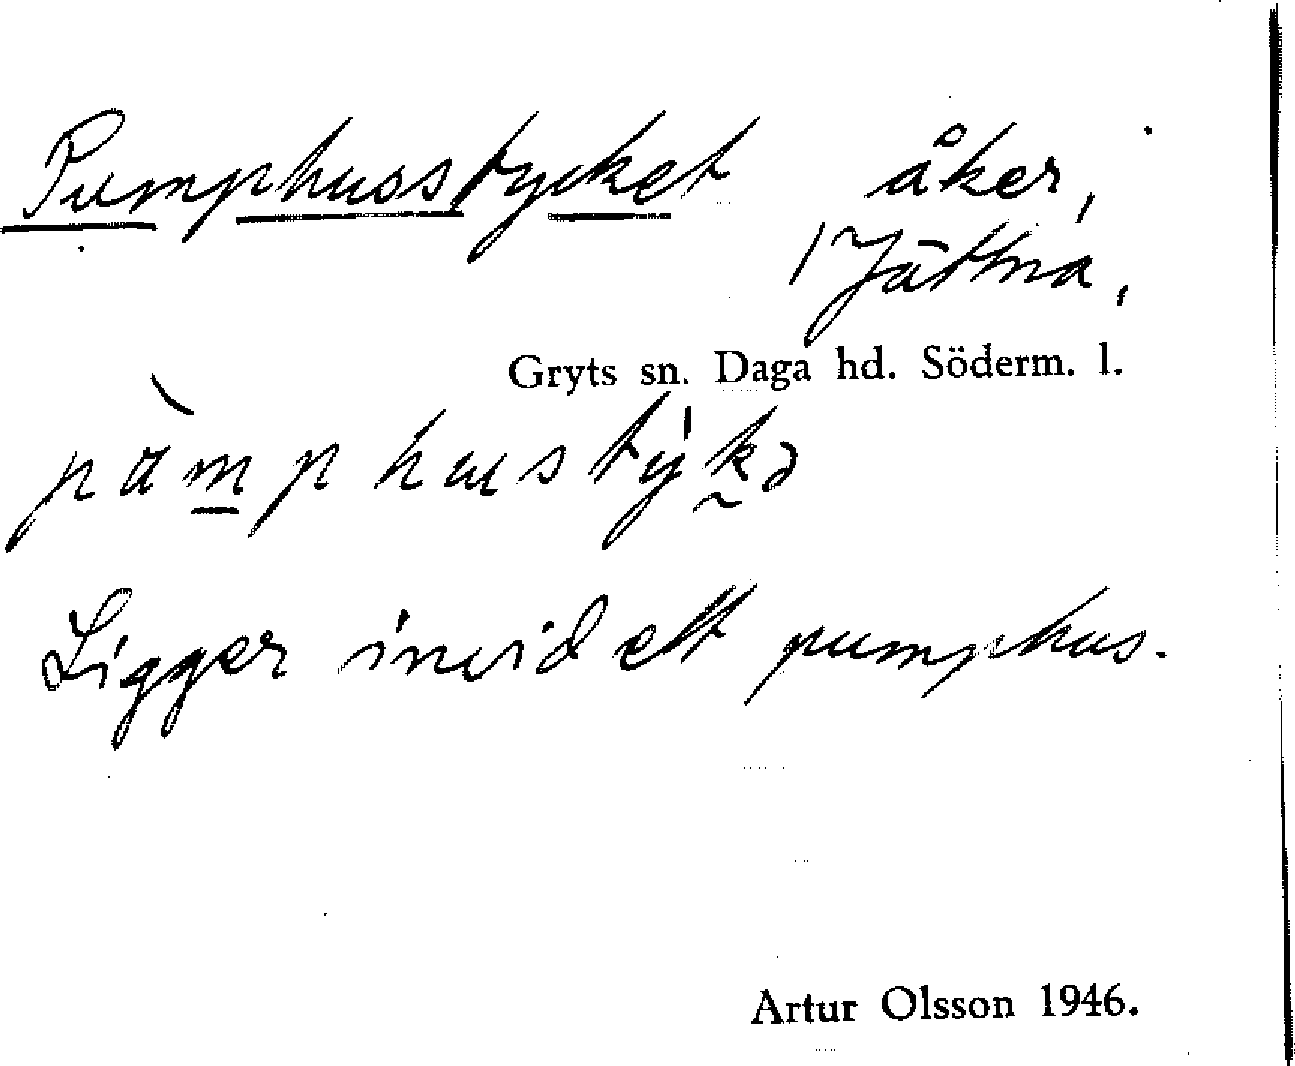 Pumphusstycket åker,
/ Jättna,
Gryts sn. Daga hd. Söderm. l.
Ligger invid ett pumphus.
Artur Olsson 1946.